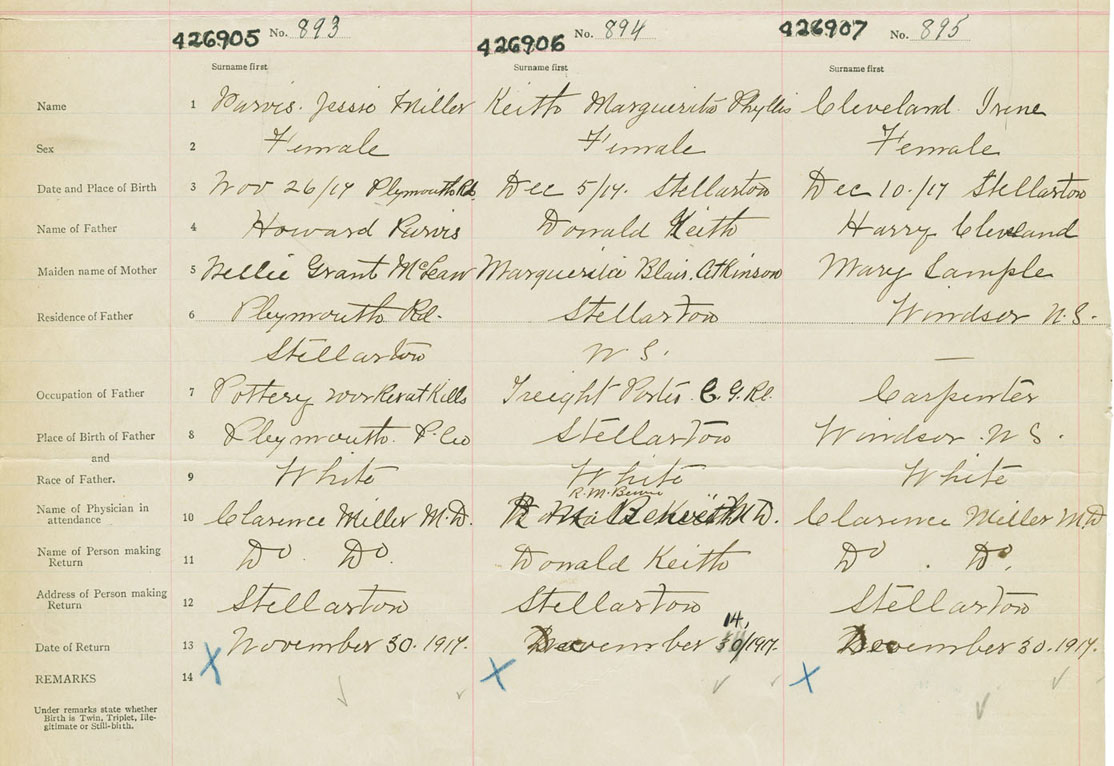 426905 No. 893 426906 No. 894 426907 No. 895
Surname first Surname first Surname first
Name 1 Purvis. Jessie Miller Keith Marguerite Phyllis Cleveland Irene
Sex 2 Female Female Female
Date and Place of Birth 3 Nov 26/17 Plymouth Rd. Dec 5/17. Stellarton Dec 10/17 Stellarton
Name of Father 4 Howard Purvis Donald Keith Harry Cleveland
Maiden name of Mother 5 Nellie Grant McLean Marguerite Blair Atkinson Mary Sample
Residence of Father 6 Plymouth Rd. Stellarton Windsor N.S.
Stellarton N.S. —
Occupation of Father 7 Pottery worker at Kills Freight Porter C.G.R. Carpenter
Place of Birth of Father 8 Plymouth. P. Co Stellarton Windsor N.S.
and
Race of Father. 9 White White White
R.M. Benvie
Name of Physician in
attendance 10 Clarence Miller M.D. M.D. Clarence Miller M.D
Name of Person making
Return 11 Do Do. Donald Keith Do . Do.
Address of Person making
Return 12 Stellarton Stellarton Stellarton
14,
Date of Return 13 November 30. 1917. December 30/1917. December 30. 1917.
REMARKS 14
Under remarks state whether
Birth is Twin, Triplet, Ille-
gitimate or Still-birth.